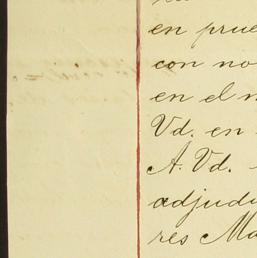 en prue
con no
en el
Vd. en
A. Vd.
adjudi
res Ma